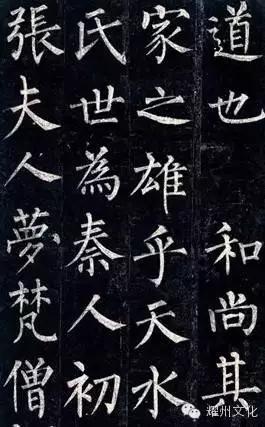 道也　和尚其
家之雄乎天水
氏世為秦人初
張夫人夢梵僧
耀州文化